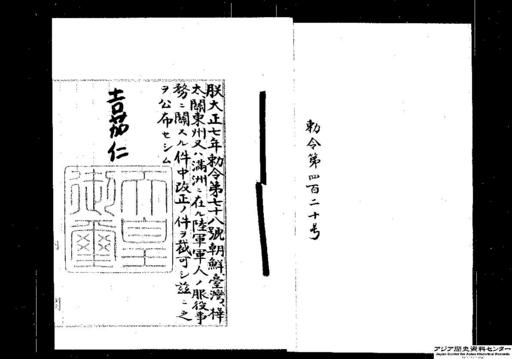 勅令第四百二十号
朕大正七年勅令第七十八號朝鮮臺灣樺
太關東州又ハ滿洲ニ在ル陸軍軍人ノ服役事
務ニ關スル件中改正ノ件ヲ裁可シ茲ニ之
ヲ公布セシム
嘉仁
天皇
御璽
アジア歴史資料センター
Japan Center for Asian Historical Records